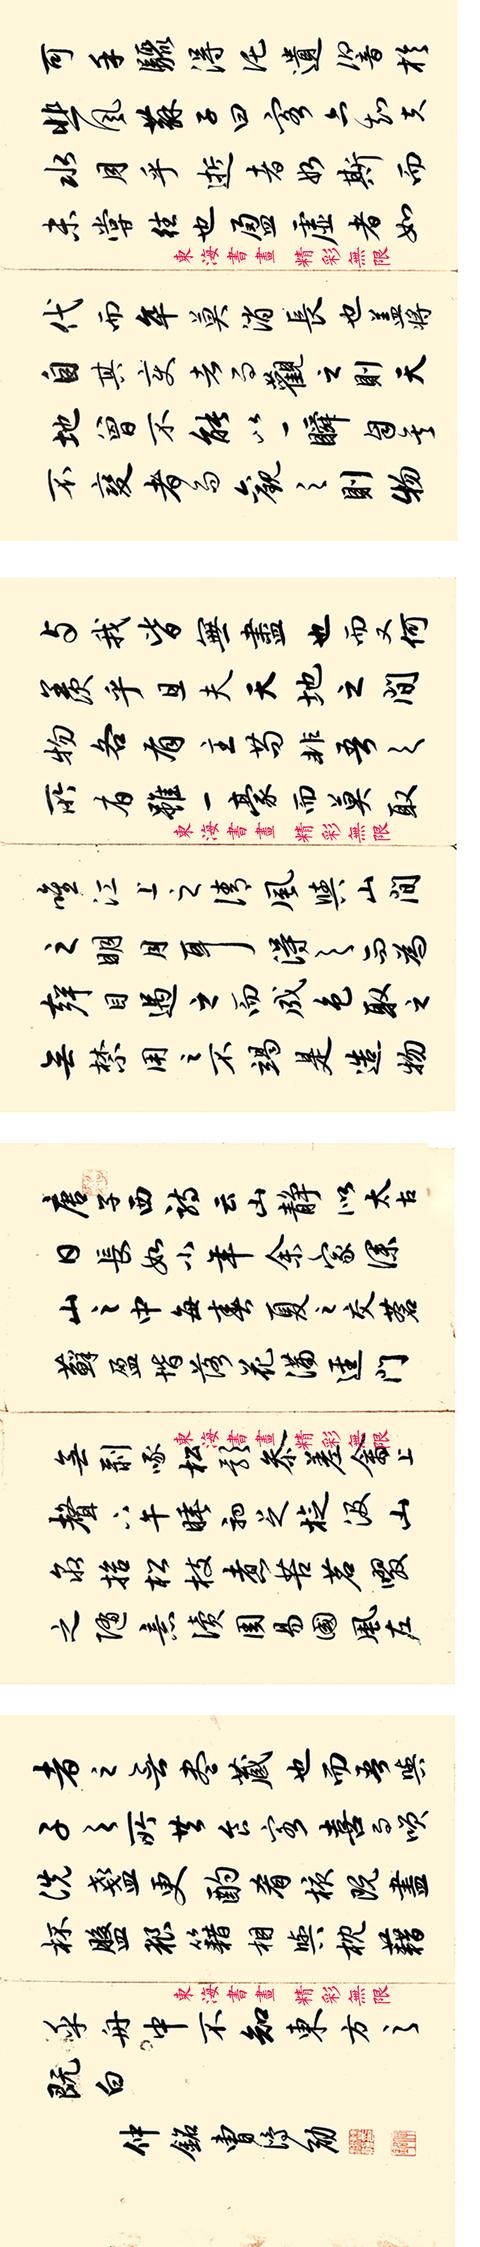 可乎驟得托遺響於
悲風蘇子曰客亦知夫
水月乎逝者如斯而
未嘗往也盈虛者如
東海書畫 精彩無限
代而卒莫消長也盖將
自其变者而觀之則天
地曾不能以一瞬自其
不變者而觀之則物
与我皆無盡也而又何
羨乎且夫天地之間
物各有主苟非吾之
所有雖一豪而莫取
東海書畫 精彩無限
惟江上之清風與山間
之明月耳得之而為
聲目遇之而成色取之
無禁用之不竭是造物
唐子西詩云山靜似太古
日長如小年余家深
山之中每春夏之交蒼
蘚盈堦落花滿徑門
東海書畫 精彩無限
無剝啄松影參差禽上
聲下午睡初足旋汲山
泉拾松枝煮苦茗啜
之隨意讀周易國風左
者之無盡藏也而吾與
子之所共食客喜而笑
洗盞更酌肴核既盡
杯盤狼籍相與枕藉
東海書畫 精彩無限
乎舟中不知東方之
既白
仲銘曹鴻勛